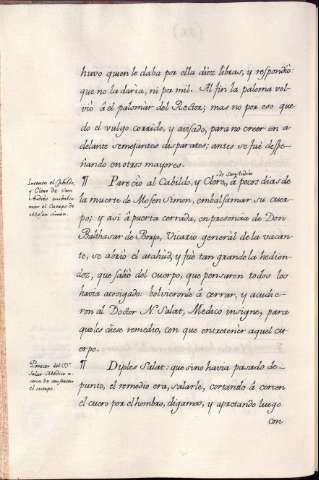 huvo quien le daba por ella diez libras, y respondió:
que no la daria, ni por mil. Al fin la paloma vol-
vió â el palomar del Rector; mas no por eso que
do el vulgo corrido, y avisado, para no creer en a-
delante semejantes disparates; antes se fuè despe-
ñando en otros mayores.
Intenta el Cabildo,
y Clero de San
Andrès embalsa-
mar el Cuerpo de
Mosen Simon.
¶ Pareciò al Cabildo, y Clero, de San Andres â pocos dias de
la muerte de Mosen Simon, embalsamar su cuer-
po; y asi â puerta cerrada, en presencia de Don
Balthasar de Borja, Vicario general de la vacan-
te, se abriò el atahùd, y fuè tan grande la hedion-
dez, que saliò del cuerpo, que pensaron todos los
havia arrojado: bolvieronle â cerrar, y acudie-
ron al Doctor N. Salat, Medico insigne, para
que les diese remedio, con que entretener aquel cu-
erpo.
Parecer del Dr.
Salat Medico a-
cerca de conservar
el cuerpo.
¶ Dijoles Salat: que si no havia pasado de-
punto, el remedio era, salarle, cortando â cercen
el cuero por el hombro, digamos, y apretando luego
con